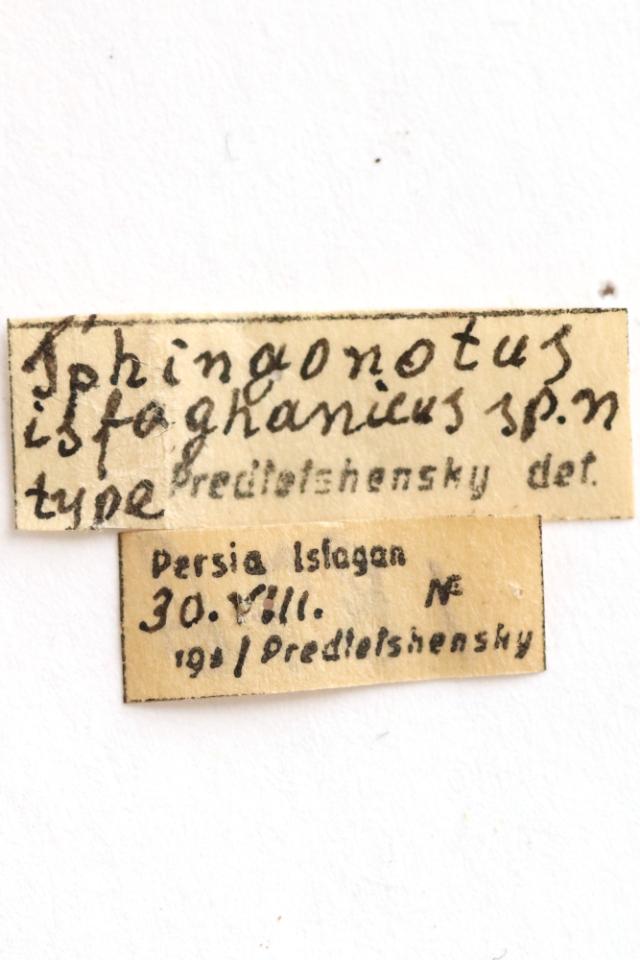 Sphingonotus
isfaghanicus sp.n
type Predtetshensky det.
Persia Isfagan
30.VIII. №
193/ Predtetshensky